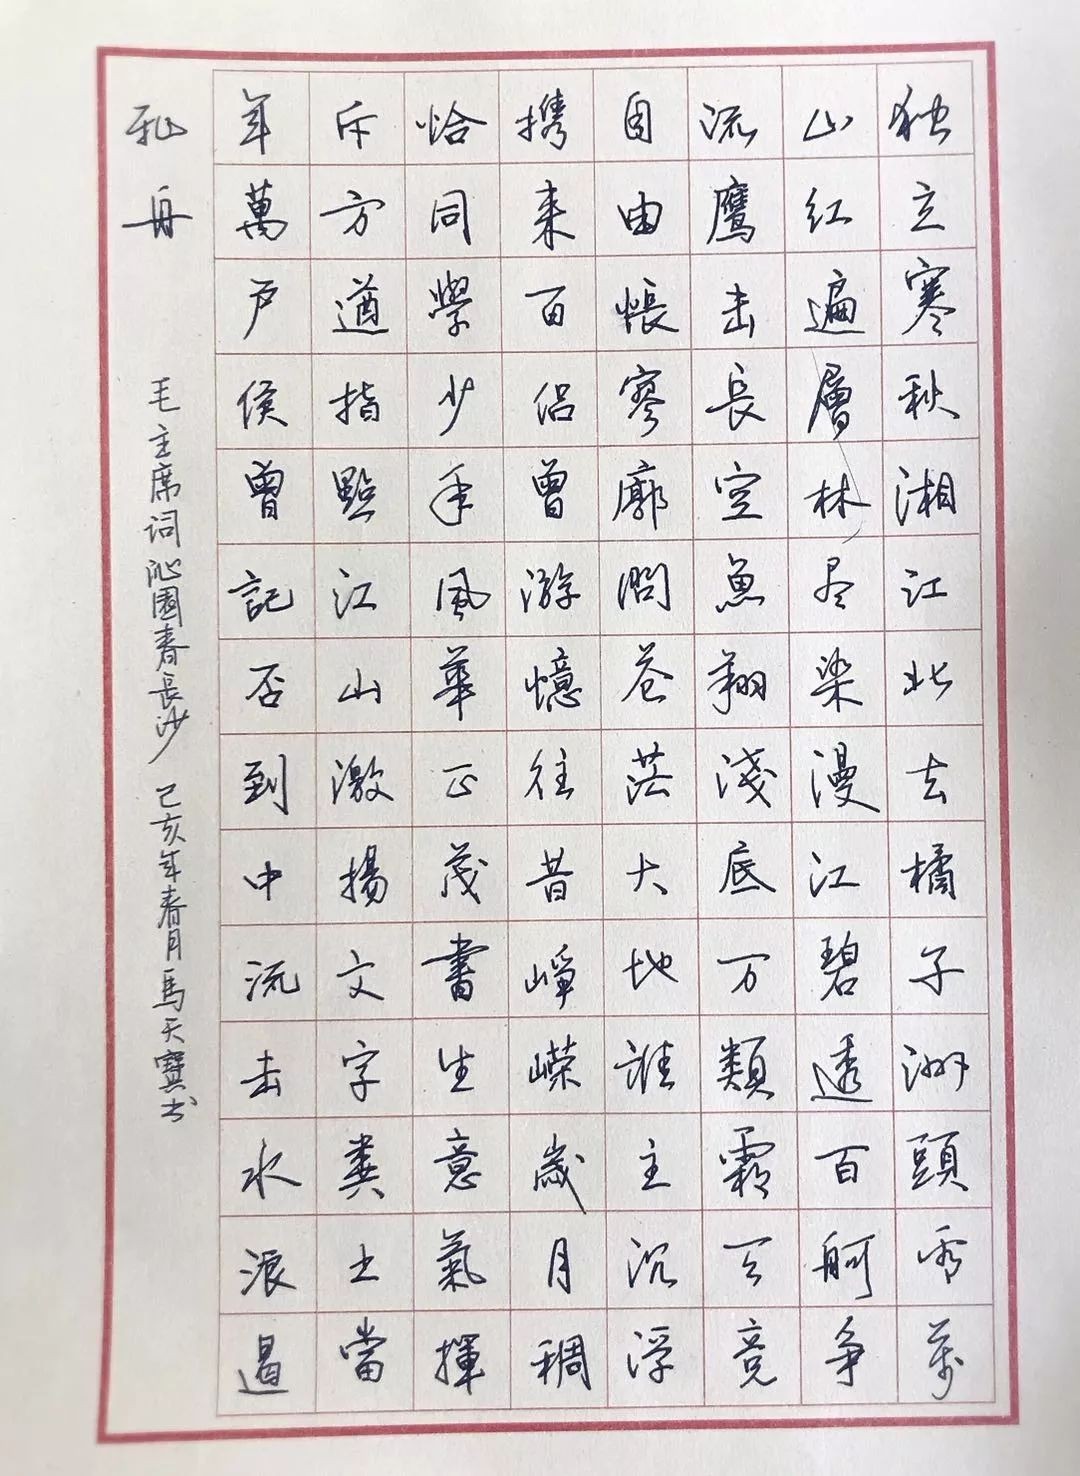 独立寒秋湘江北去橘子洲頭看萬
山红遍層林尽染漫江碧透百舸争
流鹰击長空魚翔淺底万類霜天競
自由悵寥廓問苍茫大地誰主沉浮
携来百侣曾游憶往昔崢嶸歲月稠
恰同學少年風華正茂書生意氣揮
斥方遒指點江山激揚文字糞土當
年萬户侯曾記否到中流击水浪遏
飛舟
毛主席词沁園春長沙 己亥年春月馬天寶书